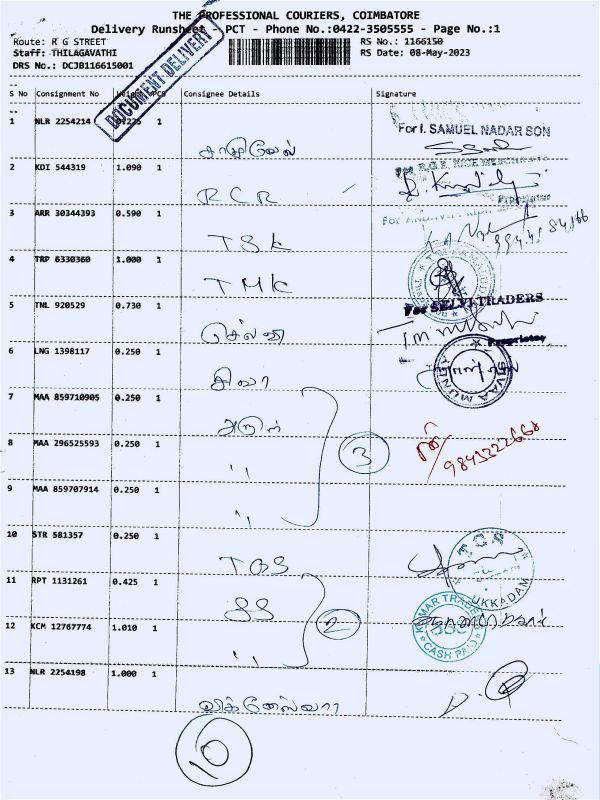 THE PROFESSIONAL COURIERS, COIMBATORE
Delivery Runsheet - PCT - Phone No.:0422-3505555 - Page No.:1
Route: R G STREET
RS No.: 1166150
Staff: THILAGAVATHI
RS Date: 08-May-2023
DRS No.: DCJB116615001
DOCUMENT DELIVERY
S No Consignment No Weight PCS Consignee Details Signature
1 NLR 2254214 0.225 1
For I. SAMUEL NADAR SON
சாமுவேல்
2 KDI 544319 1.090 1
RCR
3 ARR 30344393 0.590 1
TSK
4 TRP 6330360 1.000 1
TMK
For SELVI TRADERS
5 TNL 920529 0.730 1
Proprietor
செல்வி
6 LNG 1398117 0.250 1
சிவா
7 MAA 859710905 0.250 1
அருள்
8 MAA 296525593 0.250 1
" 3 9843322668
9 MAA 859707914 0.250 1
"
10 STR 581357 0.250 1
TGS
UKKADAM
11 RPT 1131261 0.425 1
SS
12 KCM 12767774 1.010 1
" 2
CASH PAID
13 NLR 2254198 1.000 1
விக்னேஸ்வரா
10